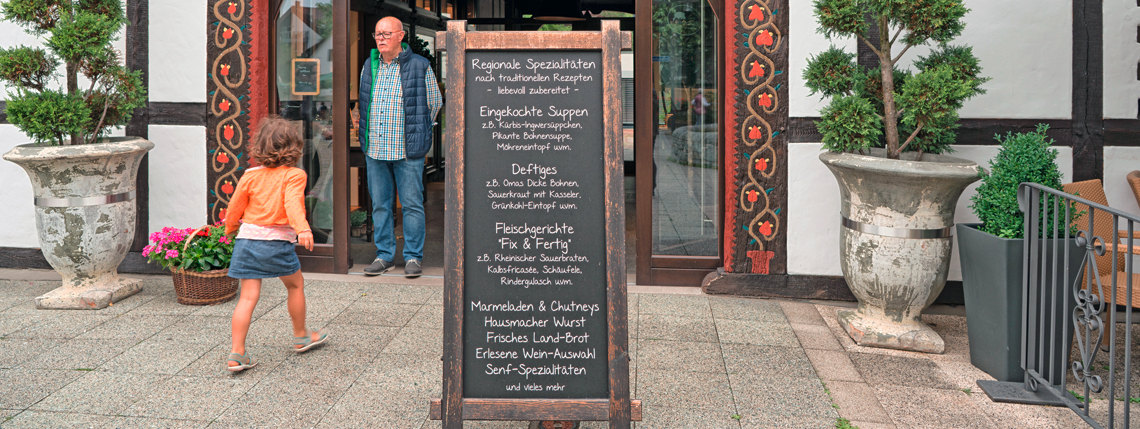 Regionale Spezialitäten
nach traditionellen Rezepten
- liebevoll zubereitet -
Eingekochte Suppen
z.B. Kürbis-Ingwersüppchen,
Pikante Bohnensuppe,
Möhreneintopf uvm.
Deftiges
z.B. Omas Dicke Bohnen,
Sauerkraut mit Kasseler,
Grünkohl-Eintopf uvm.
Fleischgerichte
"Fix & Fertig"
z.B. Rheinischer Sauerbraten,
Kalbsfricasée, Schäufele,
Rindergulasch uvm.
Marmeladen & Chutneys
Hausmacher Wurst
Frisches Land-Brot
Erlesene Wein-Auswahl
Senf-Spezialitäten
und vieles mehr